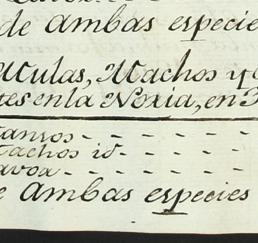 de ambas especie
Mulas, Machos y
tes en la Noria, en 3
tansos - - - - - -
achos id - - - - -
avor - - - - - -
e ambas especies